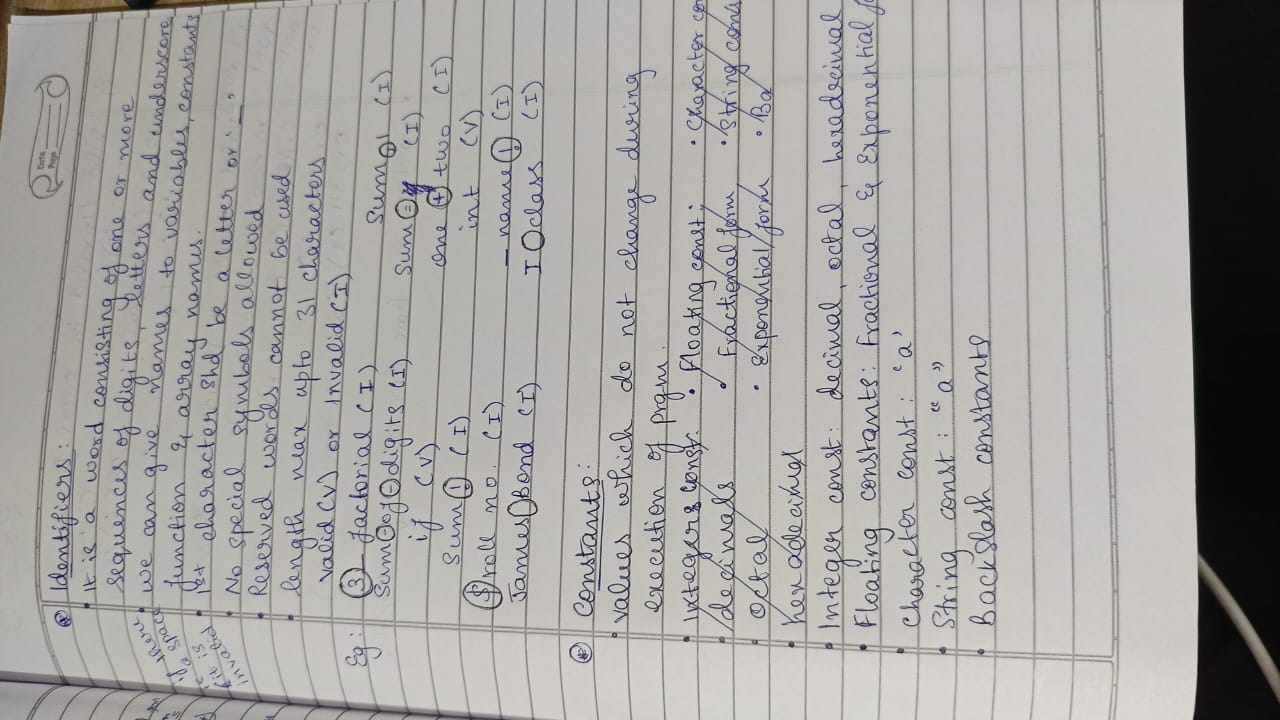 Date
Page
Identifiers:
It is a word consisting of one or more
sequences of digits, letters and underscore
we can give names to variables, constants
function & array names.
if there
is a space
it is
invalid
1st character shd be a letter or '_'
No special symbols allowed
Reserved words cannot be used
length max upto 31 characters
valid (V) or Invalid (I)
Eg: 3 factorial (I)
sum o1 (I)
Sum-of-digits (I)
sum=y (I)
if (V)
one + two (I)
Sum! (I)
int (V)
$roll no. (I)
_name! (I)
James Bond (I)
I class (I)
Constants:
values which do not change during
execution of prgm.
Integers const. • Floating const; • Character co
decimals • Fractional form • String cons
octal • Exponential form • Ba
hexadecimal
Integer const: decimal, octal, hexadecimal
Floating constants: Fractional & Exponential fo
character const: 'a'
String const: "a"
Backslash constants